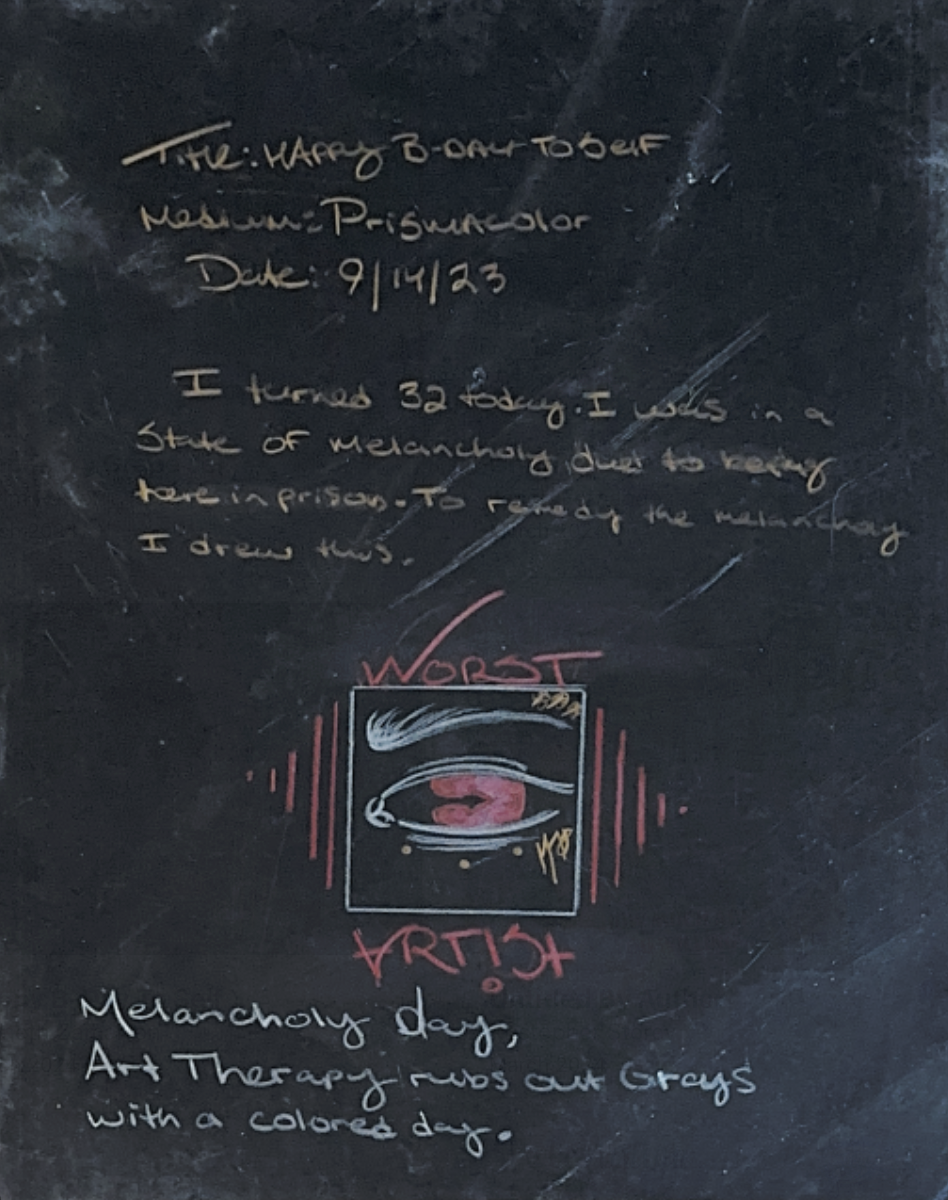 Title: HAppy B-DAY TO Self
Medium: PrismAcolor
Date: 9/14/23
I turned 32 today. I was in a
State of Melancholy due to being
here in prison. To remedy the melancholy
I drew this.
WORST
ARTIST
Melancholy day,
Art Therapy rubs out Grays
with a colored day.